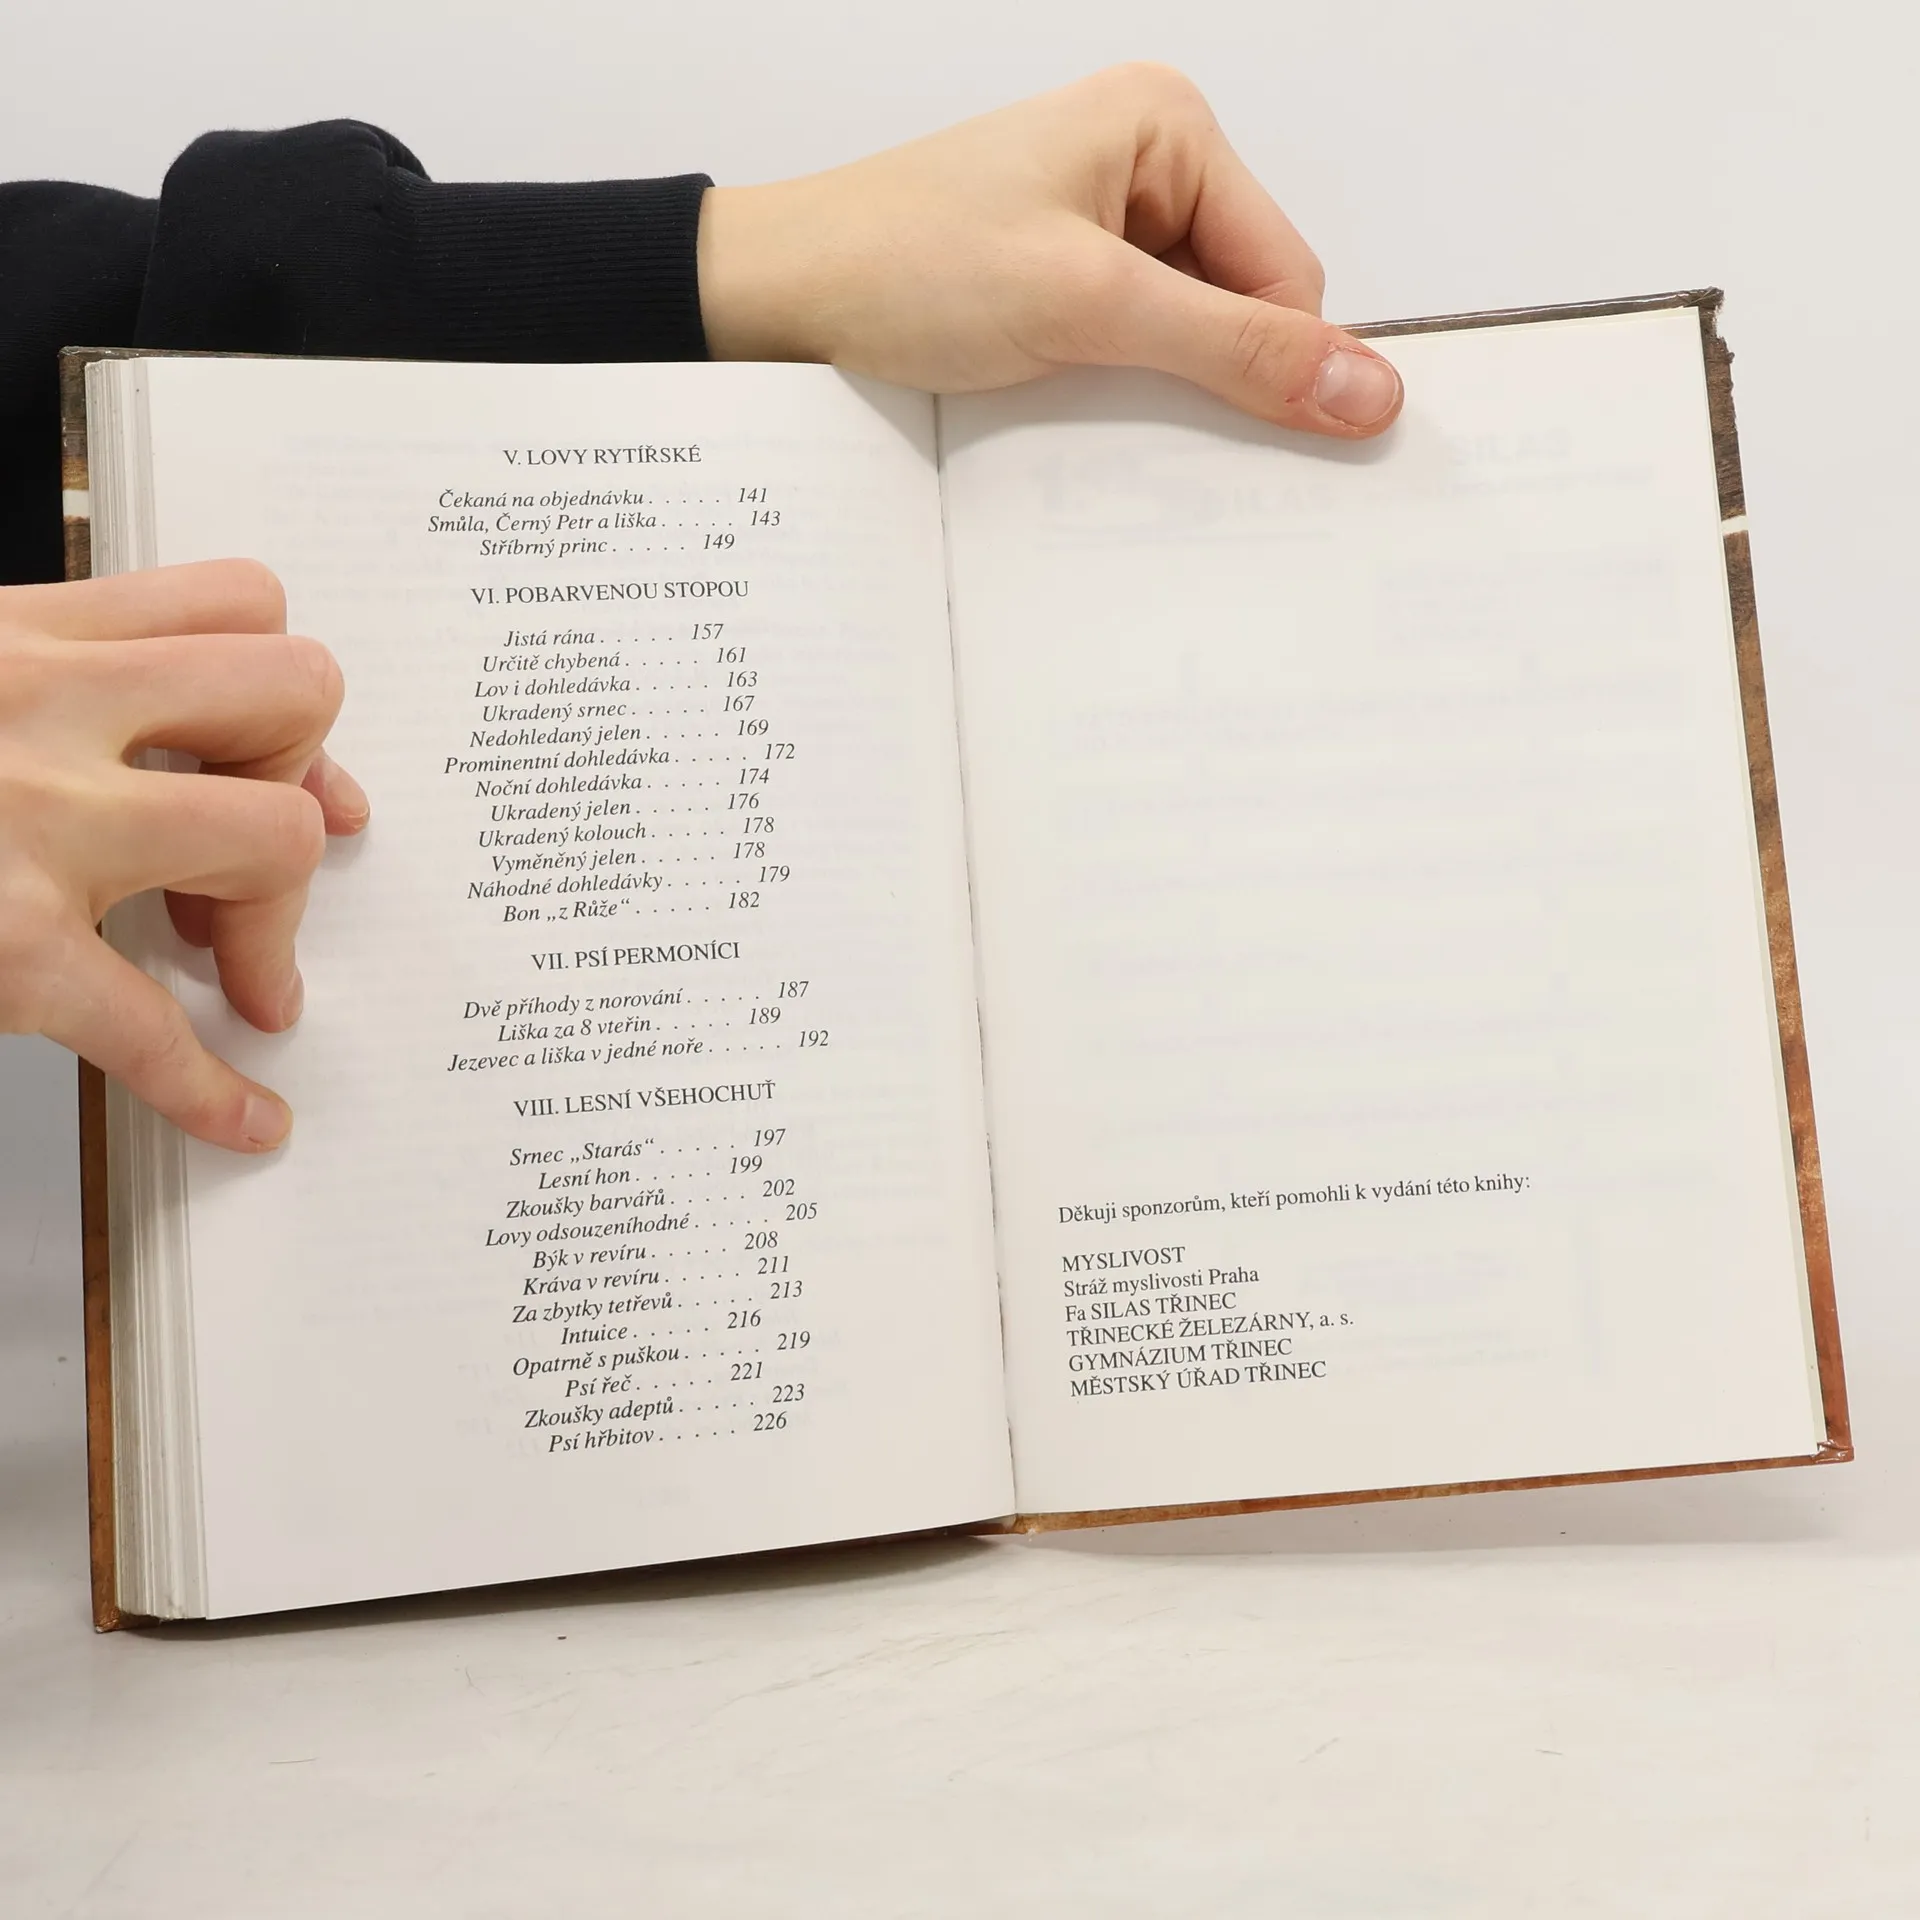 V. LOVY RYTÍŘSKÉ
Čekaná na objednávku . . . . . 141
Smůla, Černý Petr a liška . . . . . 143
Stříbrný princ . . . . . 149
VI. POBARVENOU STOPOU
Jistá rána . . . . . 157
Určitě chybená . . . . . 161
Lov i dohledávka . . . . . 163
Ukradený srnec . . . . . 167
Nedohledaný jelen . . . . . 169
Prominentní dohledávka . . . . . 172
Noční dohledávka . . . . . 174
Ukradený jelen . . . . . 176
Ukradený kolouch . . . . . 178
Vyměněný jelen . . . . . 178
Náhodné dohledávky . . . . . 179
Bon „z Růže“ . . . . . 182
VII. PSÍ PERMONÍCI
Dvě příhody z norování . . . . . 187
Liška za 8 vteřin . . . . . 189
Jezevec a liška v jedné noře . . . . . 192
VIII. LESNÍ VŠEHOCHUŤ
Srnec „Starás“ . . . . . 197
Lesní hon . . . . . 199
Zkoušky barvářů . . . . . 202
Lovy odsouzeníhodné . . . . . 205
Býk v revíru . . . . . 208
Kráva v revíru . . . . . 211
Za zbytky tetřevů . . . . . 213
Intuice . . . . . 216
Opatrně s puškou . . . . . 219
Psí řeč . . . . . 221
Zkoušky adeptů . . . . . 223
Psí hřbitov . . . . . 226
Děkuji sponzorům, kteří pomohli k vydání této knihy:
MYSLIVOST
Stráž myslivosti Praha
Fa SILAS TŘINEC
TŘINECKÉ ŽELEZÁRNY, a. s.
GYMNÁZIUM TŘINEC
MĚSTSKÝ ÚŘAD TŘINEC